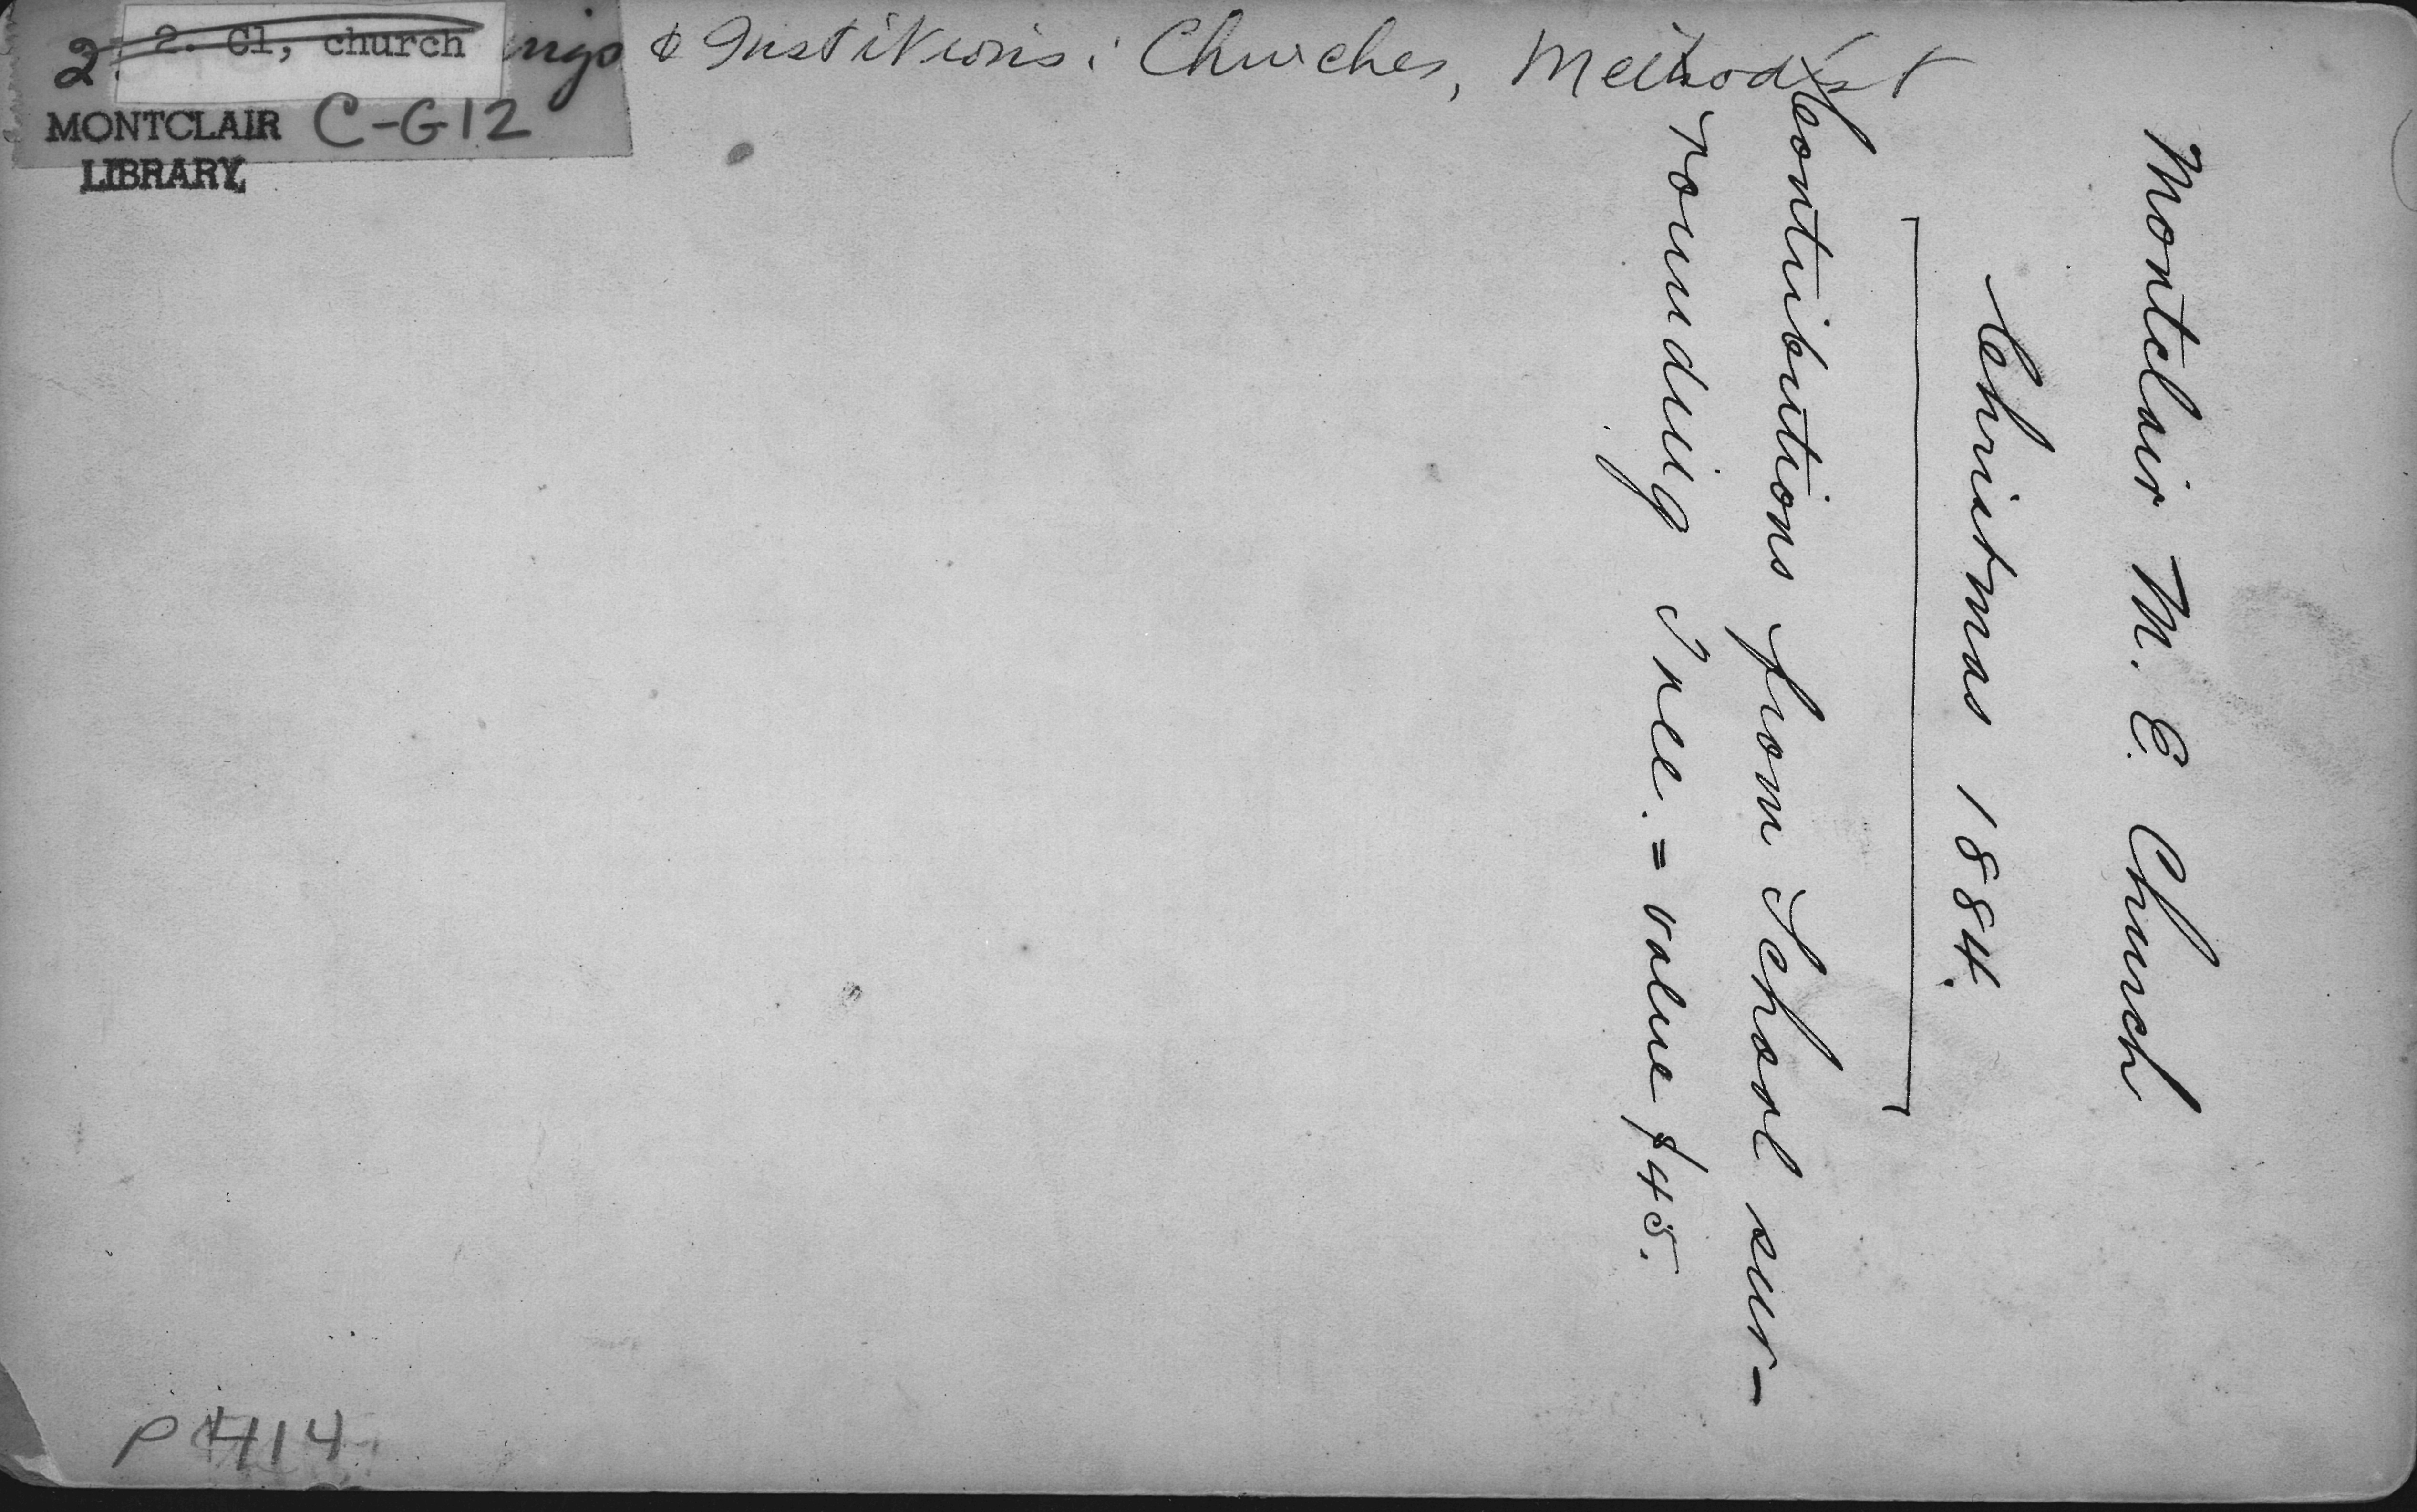 2. 2. Cl, church ings & Institutions: Churches, Methodist
MONTCLAIR C-G12
LIBRARY
Montclair M. E. Church
Christmas 1884.
Contributions from School sur-
rounding Tree. = value $45.
P 414